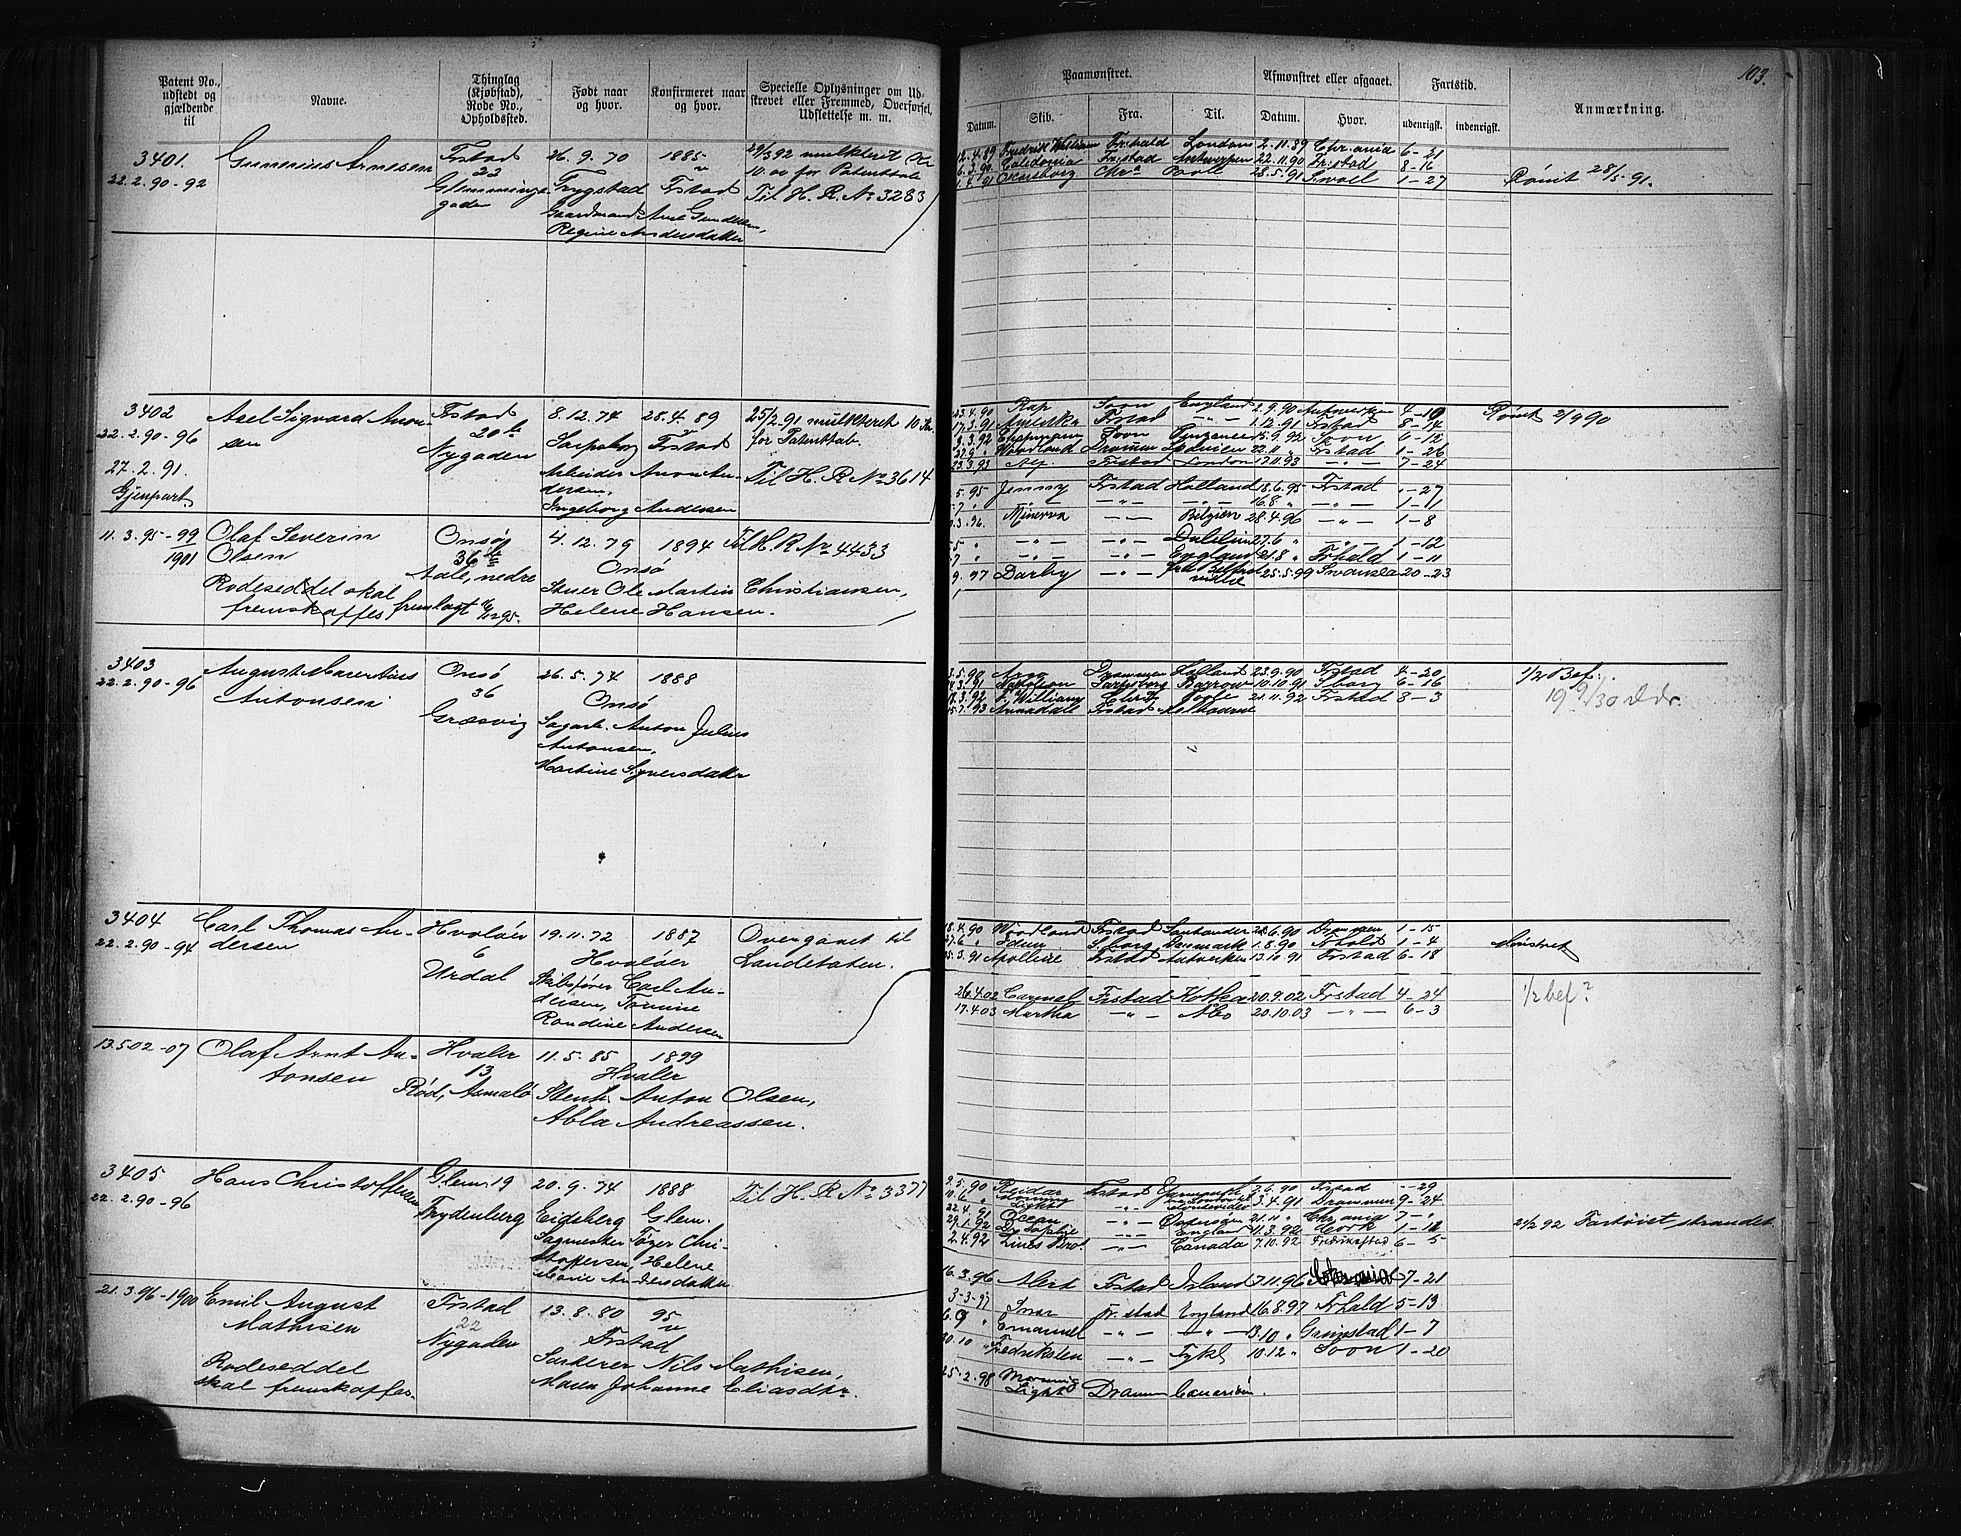 103.
Patent No., udstedt og gjældende til
Navne.
Thinglag (Kjøbstad), Rode No., Opholdssted.
Født naar og hvor.
Konfirmeret naar og hvor.
Specielle Oplysninger om Udskrevet eller Fremmed, Overførsel, Udslettelse m. m.
Paamønstret.
Afmønstret eller afgaaet.
Fartstid.
Anmærkning.
Datum. Skib. Fra. Til. Datum. Hvor. udenrigsk. indenrigsk.
3401. Gunerius Arnesen Frstad 26. 9. 70 1885 29/3 92 mulkteret
22. 2. 90 - 92 23 Trygstad Frstad 10.00 for Patenttab
Glemminge gaden Gaardmand Arne Gundersen, Til H. R. No 3283
Regine Andersdatter
12.4.89 Fredrik William Fr.hald London 2.11.89 Chr.ania 6-21
6.3.90 Caledonia Fr.stad Antwerpen 22.11.90 Fr.stad 8-16
91 Oscarsborg Chr.a 28.5.91 1-27 Rømt 28/5-91.
3402 Axel Sigvard Anton- Frstad 8. 12. 74 28. 4. 89 25/2. 91 mulkteret 10 Kr.
22. 2. 90 - 96 sen 20 Sarpsborg Frstad for Patenttab.
27. 2. 91. Nygaden Arbeider Anton An-
Gjenpart dersen, Til H. R. No 3614
Ingeborg Andersen
23.4.90 Rap Soon England 2.9.90 Antwerpen 4-10 Rømt 2/9 90
17.3.91 Frstad -"- 1.12.91 Frstad 8-14
3.92 Chapmann Soon 15.9.92 Soon 6-12
Woodland Drammen 22.11 " Frstad 1-26
23.3.93 Alf. Frstad London 17.11.93 -"- 7-24
11. 3. 95 - 99 Olaf Severin Onsøy 4. 12. 79 1894 Til H. R. No 4433
1901 Olsen 36 Onsø
Aale, nedre Stuer Ole Martin Christiansen,
Rodeseddel skal fremskaffes fremlagt Helene Hansen.
5.95 Jenny Frstad Holland 18.6.95 Frstad "-27
7 " -"- -"- -"- 16.8 " -"- 1-11
3.96 Minerva -"- Belgien 28.4.96 -"- 1-8
5 " -"- -"- Dublin 27.6 " -"- 1-12
7 " " -"- England 21.8 " Frhald 1-11
9.97 Darby -"- 25.5.99 Swansea 20-23
3403 August Marentius Onsø 26. 5. 74 1888
22. 2. 90 - 96 Antonsen 36 Onsø
Græsvig Sagarb. Anton Julius
Antonsen,
Martine Syversdatter
5.90 Drammen Holland 23.9.90 Frstad 4-20 1/2 Bef.
3.91 Sarpsborg Barrow 10.10.91 Sborg 6-16
3.92 Williams 21.11.92 Frstad 8-3
15.7.93 Annandale Frstad Melbourne
3404 Carl Thomas An- Hvaløer 19. 11. 72 1887 Overgaaet til
22. 2. 90 - 94 dersen 6 Hvaløer Landetaten.
Urdal Skibsfører Carl An-
dersen, Tomine
Randine Andersen
18.4.90 Woodland Frstad Santander 6.90 Drammen 1-15
27.6 " Idun S.borg Danemark 1.8.90 Frhald 1-4
25.3.91 Apolline Frstad Antwerpen 13.10.91 Frstad 6-18
13.5.02-07 Olaf Arnt An- Hvaler 11. 5. 85 1899
tonsen 13 Hvaler
Rød, Asmalø Stenh. Anton Olsen,
Abla Andreassen.
26.4.02 Carmel Frstad Kotka 20.9.02 Frstad 4-24 1/2 bef?
17.4.03 Martha -"- Abo 20.10.03 -"- 6-3
3405 Hans Christoffersen Glem. 19 20. 9. 74 1888 Til H. R. No 3377
22. 2. 90 - 96 Frydenberg Eidsberg Glem.
Sagmester Tøger Chri-
stoffersen, Helene
Marie Andersdatter
9.5.90 Reidar Frstad 6.90 Frstad "-29
10.6 " Morning Light -"- Montevideo 3.4.91 Drammen 9-24
22.4.91 Ocean -"- Østersøen 21.11 " Chr.ania 7-"
29.1.92 Dr. Sophie -"- England 11.3.92 1-12 21/2 92 Fartøiet strandet
2.4.92 -"- Canada 7.10.92 Fredrikstad 6-5
21. 3. 96 - 1900 Emil August Frstad 13. 8. 80 95
Mathisen 22 Frstad
Nygaden Sorterer Nils Mathisen,
Rodeseddel Maren Johanne Eliasdtr.
skal fremskaffes.
16.3.96 Alert Frstad Island 7.11.96 7-21
3-3-97 Ivar Fr.stad England 16.8.97 Frhald 5-13
6.9 " Emanuel -"- -"- 13.10 " Grimstad 1-7
20.10 " Fredriksten -"- Tyskl 10.12 " Soon 1-20
25.2.98 Morning Light Dramm